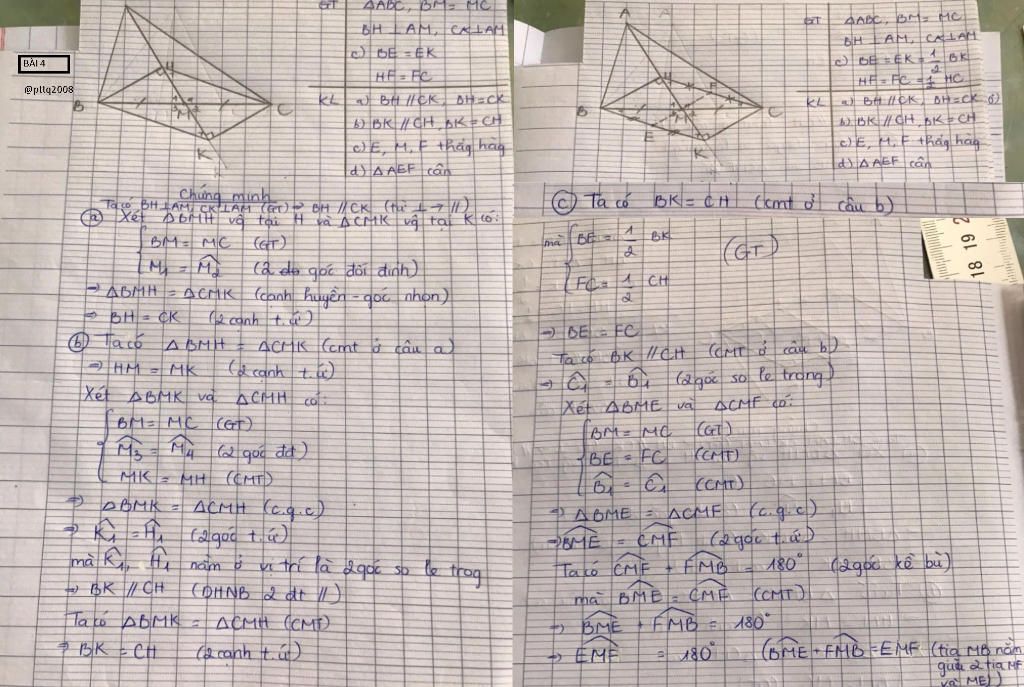 BÀI 4
@pltq2008
GT ΔABC, BM = MC
BH ⊥ AM, CK ⊥ AM
c) BE = EK
HF = FC
KL a) BH // CK, BH = CK
b) BK // CH, BK = CH
c) E, M, F thẳng hàg
d) ΔAEF cân
B H M C K
Chứng minh
Ta có BH ⊥ AM, CK ⊥ AM (GT) ⇒ BH // CK (từ ⊥ → //)
a) Xét ΔBMH vg tại H và ΔCMK vg tại K có:
BM = MC (GT)
M₁ = M̂₂ (2 góc đối đỉnh)
⇒ ΔBMH = ΔCMK (cạnh huyền - góc nhọn)
⇒ BH = CK (2 cạnh t.ứ)
b) Ta có ΔBMH = ΔCMK (cmt ở câu a)
⇒ HM = MK (2 cạnh t.ứ)
Xét ΔBMK và ΔCMH có:
BM = MC (GT)
M̂₃ = M̂₄ (2 góc đđ)
MK = MH (CMT)
⇒ ΔBMK = ΔCMH (c.g.c)
⇒ K̂₁ = Ĥ₁ (2 góc t.ứ)
mà K̂₁, Ĥ₁ nằm ở vị trí là 2 góc so le trog
⇒ BK // CH (DHNB 2 đt //)
Ta có ΔBMK = ΔCMH (CMT)
⇒ BK = CH (2 cạnh t.ứ)
A B H F M E C K
GT ΔABC, BM = MC
BH ⊥ AM, CK ⊥ AM
c) BE = EK = 1/2 BK
HF = FC = 1/2 HC
KL a) BH // CK, BH = CK
b) BK // CH, BK = CH
c) E, M, F thẳg hàg
d) ΔAEF cân
c) Ta có BK = CH (cmt ở câu b)
mà BE = 1/2 BK
(GT)
FC = 1/2 CH
⇒ BE = FC
Ta có BK // CH (CMT ở câu b)
⇒ Ĉ₁ = B̂₁ (2 góc so le trong)
Xét ΔBME và ΔCMF có:
BM = MC (GT)
BE = FC (CMT)
B̂₁ = Ĉ₁ (CMT)
⇒ ΔBME = ΔCMF (c.g.c)
⇒ BME = CMF (2 góc t.ứ)
Ta có CMF + FMB = 180° (2 góc kề bù)
mà BME = CMF (CMT)
⇒ BME + FMB = 180°
⇒ EMF = 180° (BME + FMB = EMF (tia MB nằm
giữa 2 tia MF
và ME))
18 19 2